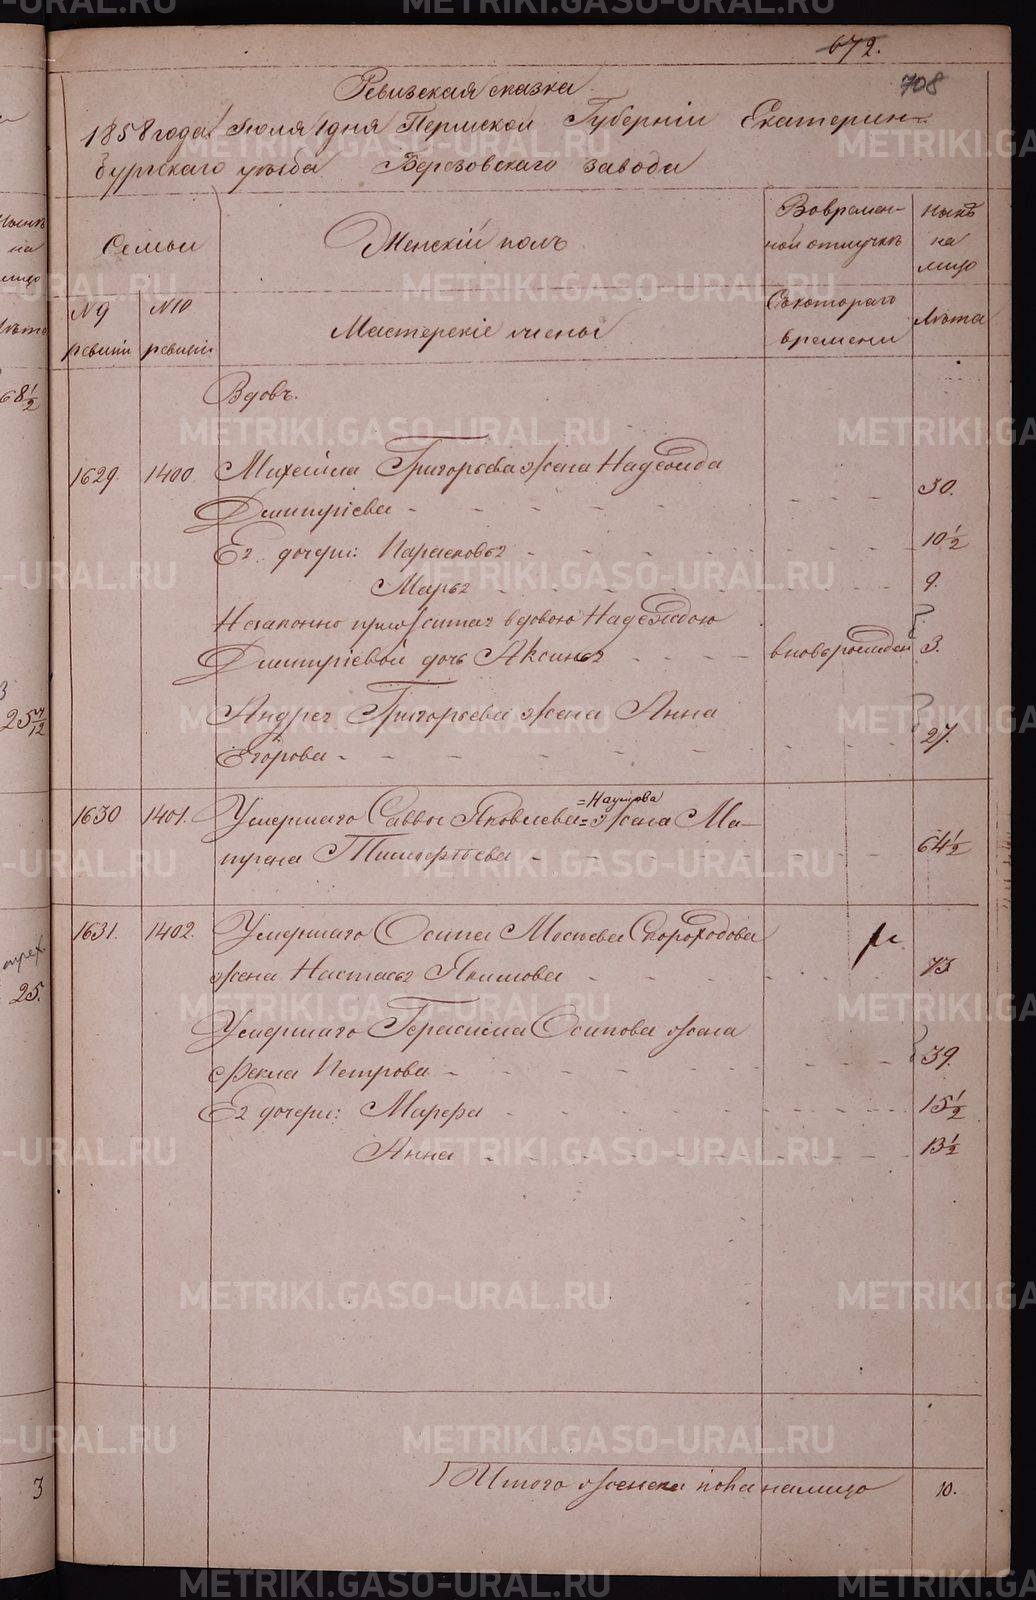 672.
708
Ревизская сказка
1858 года Июля 1 дня Пермской Губерніи Екатерин-
бургскаго уѣзда Березовскаго завода
Семьи
Женскій полъ
Вовремен-
ной отлучкѣ
Нынѣ
на
лицо
№ 9
ревизіи
№ 10
ревизіи
Мастерскіе члены
Съкотораго
времени
Лѣта
Вдовъ.
1629. 1400 Михайла Григорьева жена Надежда
Дмитріева - - - - 30.
Ея дочери: Парасковья - - - 10 1/2
Марья - - - 9.
Незаконно прижитая вдовою Надеждою
Дмитріевой дочь Аксинья - - - вновьрожден 3.
Андрея Григорьева жена Анна
Егорова - - - - 27.
1630 1401. Умершаго Саввы Яковлева =Наумова= жена Ма-
тимофѣева - - - - 64 1/2
1631. 1402. Умершаго Осипа Скороходова
жена Настасья Якимова - - - 73.
Умершаго Герасима Осипова жена
Фекла Петрова - - - - 39.
Ея дочери: Марфа - - - 15 1/2
Анна - - - 13 1/2
Итого женска пола налицо 10.
68 1/2
25 4/12
25.
3
METRIKI.GASO-URAL.RU